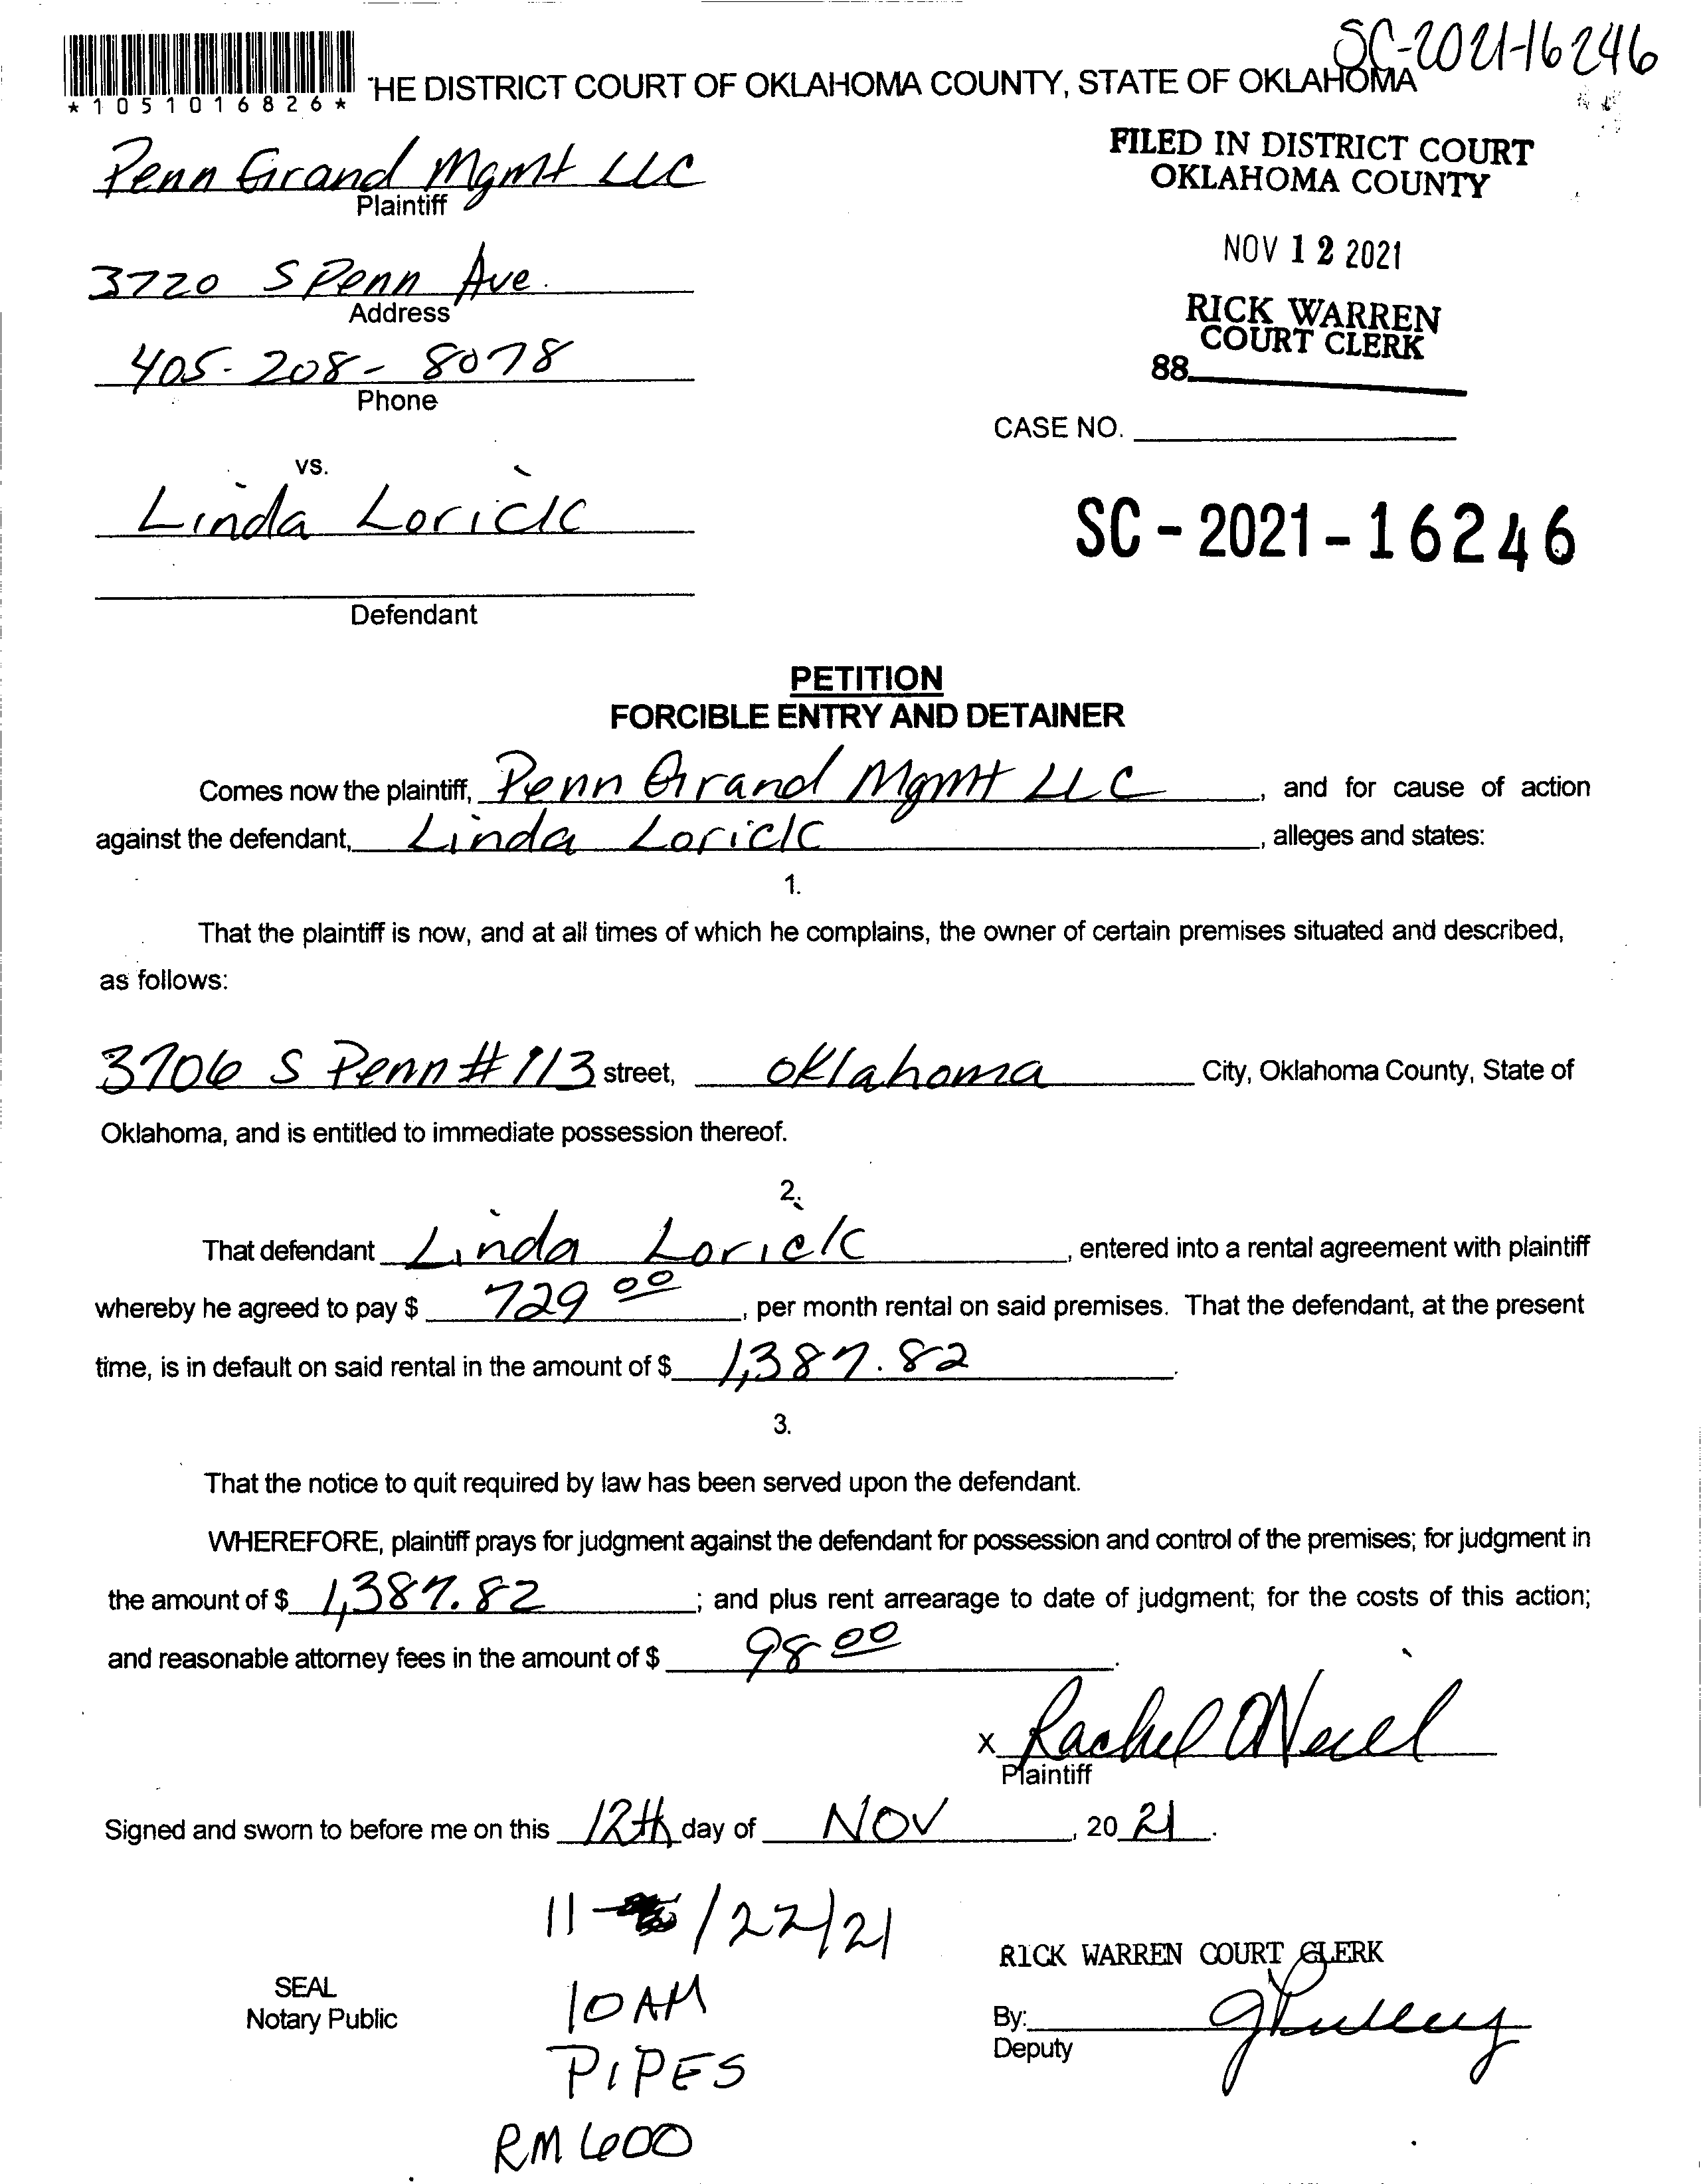 SC-2021-16246
*1051016826* 'HE DISTRICT COURT OF OKLAHOMA COUNTY, STATE OF OKLAHOMA
Penn Grand Mgmt LLC
Plaintiff
FILED IN DISTRICT COURT
OKLAHOMA COUNTY
3720 S Penn Ave.
Address
NOV 12 2021
405-208-8078
Phone
RICK WARREN
COURT CLERK
88
CASE NO.
vs.
Linda Lorick
SC-2021-16246
Defendant
PETITION
FORCIBLE ENTRY AND DETAINER
Comes now the plaintiff, Penn Grand Mgmt LLC, and for cause of action
against the defendant, Linda Lorick, alleges and states:
1.
That the plaintiff is now, and at all times of which he complains, the owner of certain premises situated and described,
as follows:
3706 S Penn #113 street, oklahoma City, Oklahoma County, State of
Oklahoma, and is entitled to immediate possession thereof.
2.
That defendant Linda Lorick, entered into a rental agreement with plaintiff
whereby he agreed to pay $ 729 00, per month rental on said premises. That the defendant, at the present
time, is in default on said rental in the amount of $ 1,387.82.
3.
That the notice to quit required by law has been served upon the defendant.
WHEREFORE, plaintiff prays for judgment against the defendant for possession and control of the premises; for judgment in
the amount of $ 1,387.82; and plus rent arrearage to date of judgment; for the costs of this action;
and reasonable attorney fees in the amount of $ 98 00.
x Rachel ONeill
Plaintiff
Signed and sworn to before me on this 12th day of NOV, 20 21.
11-/22/21
RICK WARREN COURT CLERK
SEAL
Notary Public
10AM
By:
Deputy
PIPES
RM 600